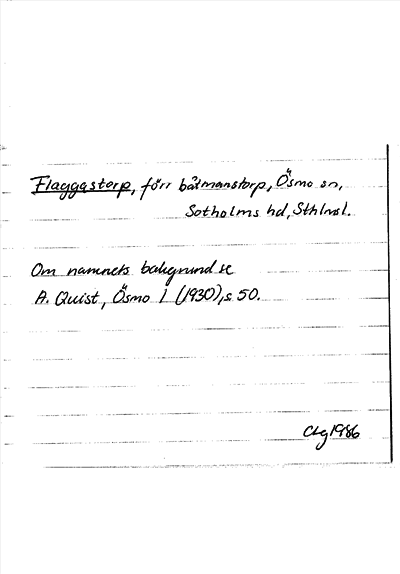 Flaggastorp, förr båtmanstorp, Ösmo sn,
Sotholms hd, Sthlmsl.
Om namnets bakgrund se
A. Quist, Ösmo 1 (1930), s 50.
CLg 1986